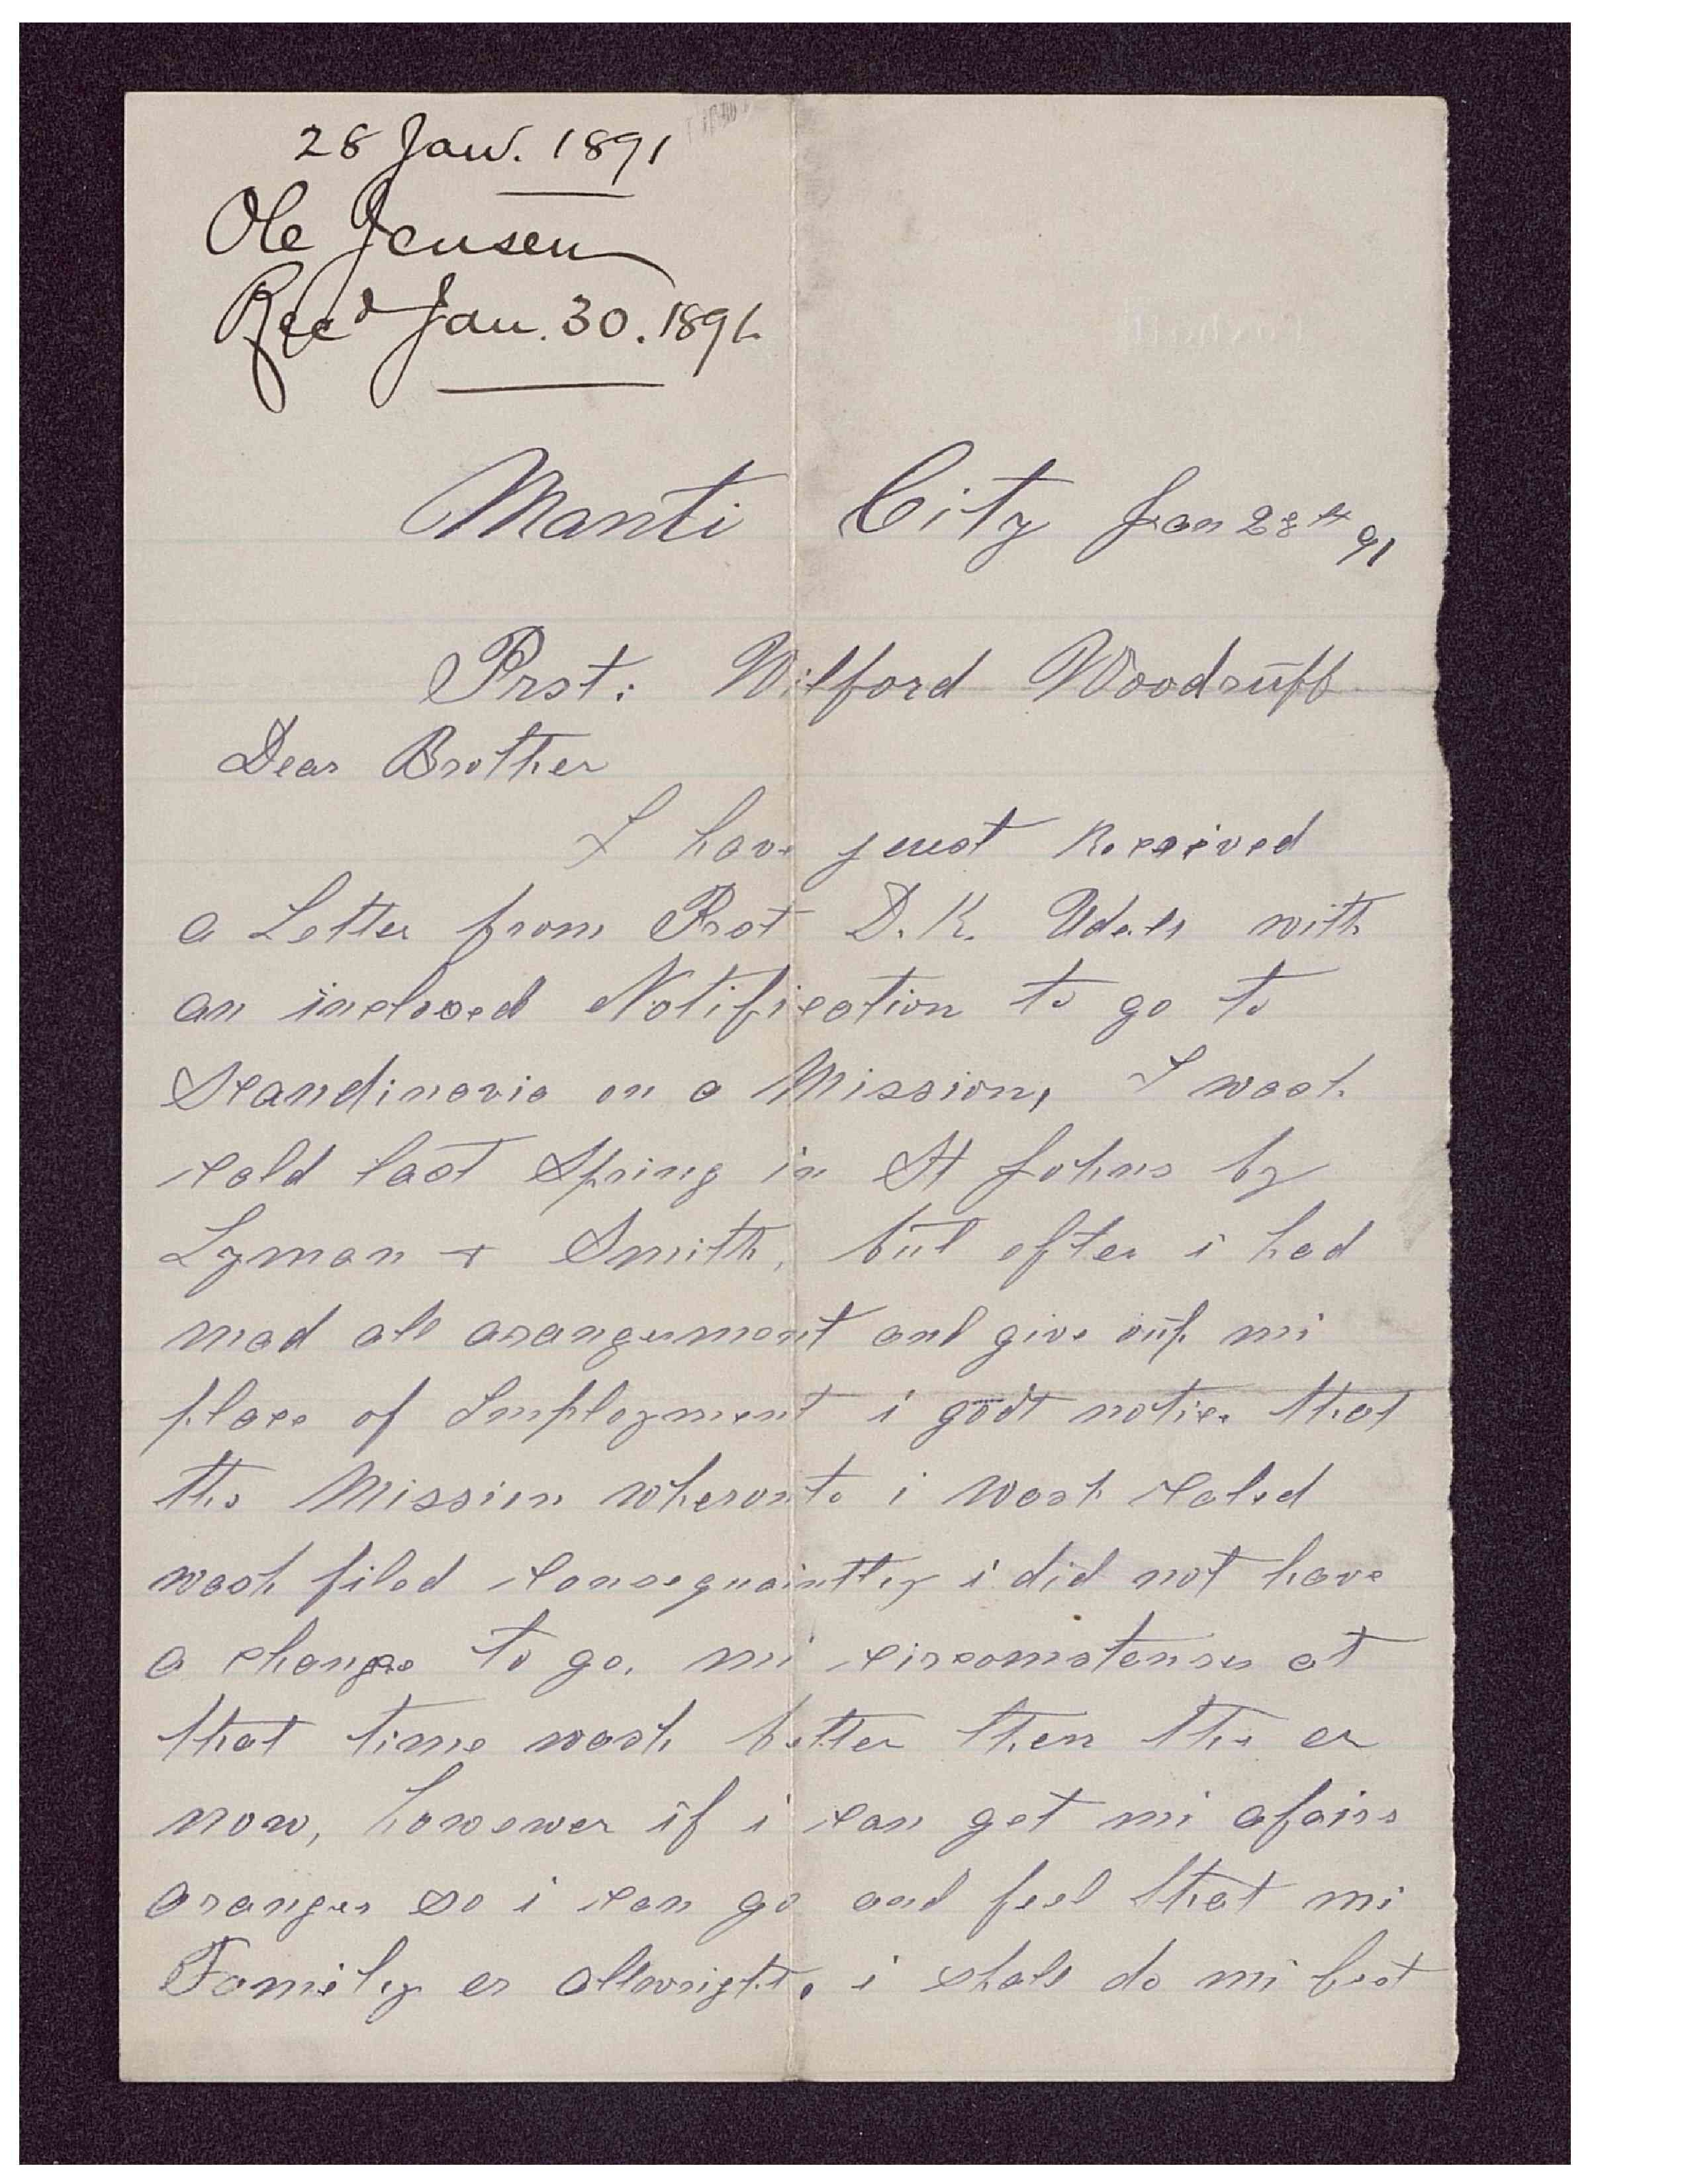 28 Jan. 1891
Ole Jensen
Recd Jan. 30. 1891
Manti City Jan 28th 91
Prst: Wilford Woodruff
Dear Brother
I have just Received
a Letter from Prst D. K. Udall with
an inclosed Notification to go to
Scandinavia on a Mission, I wash
cald last Spring in St Johns by
Lyman & Smith, but efter i had
mad all arangement and give up mi
place of Employment i godt notice that
the Mission wheronto i wash caled
wash filed consequaintley i did not have
a change to go. mi circomstenses at
that time wash better then the er
now, howewer if i can get mi afairs
aranges so i can go and feel that mi
Family er allwright. i shall do mi best